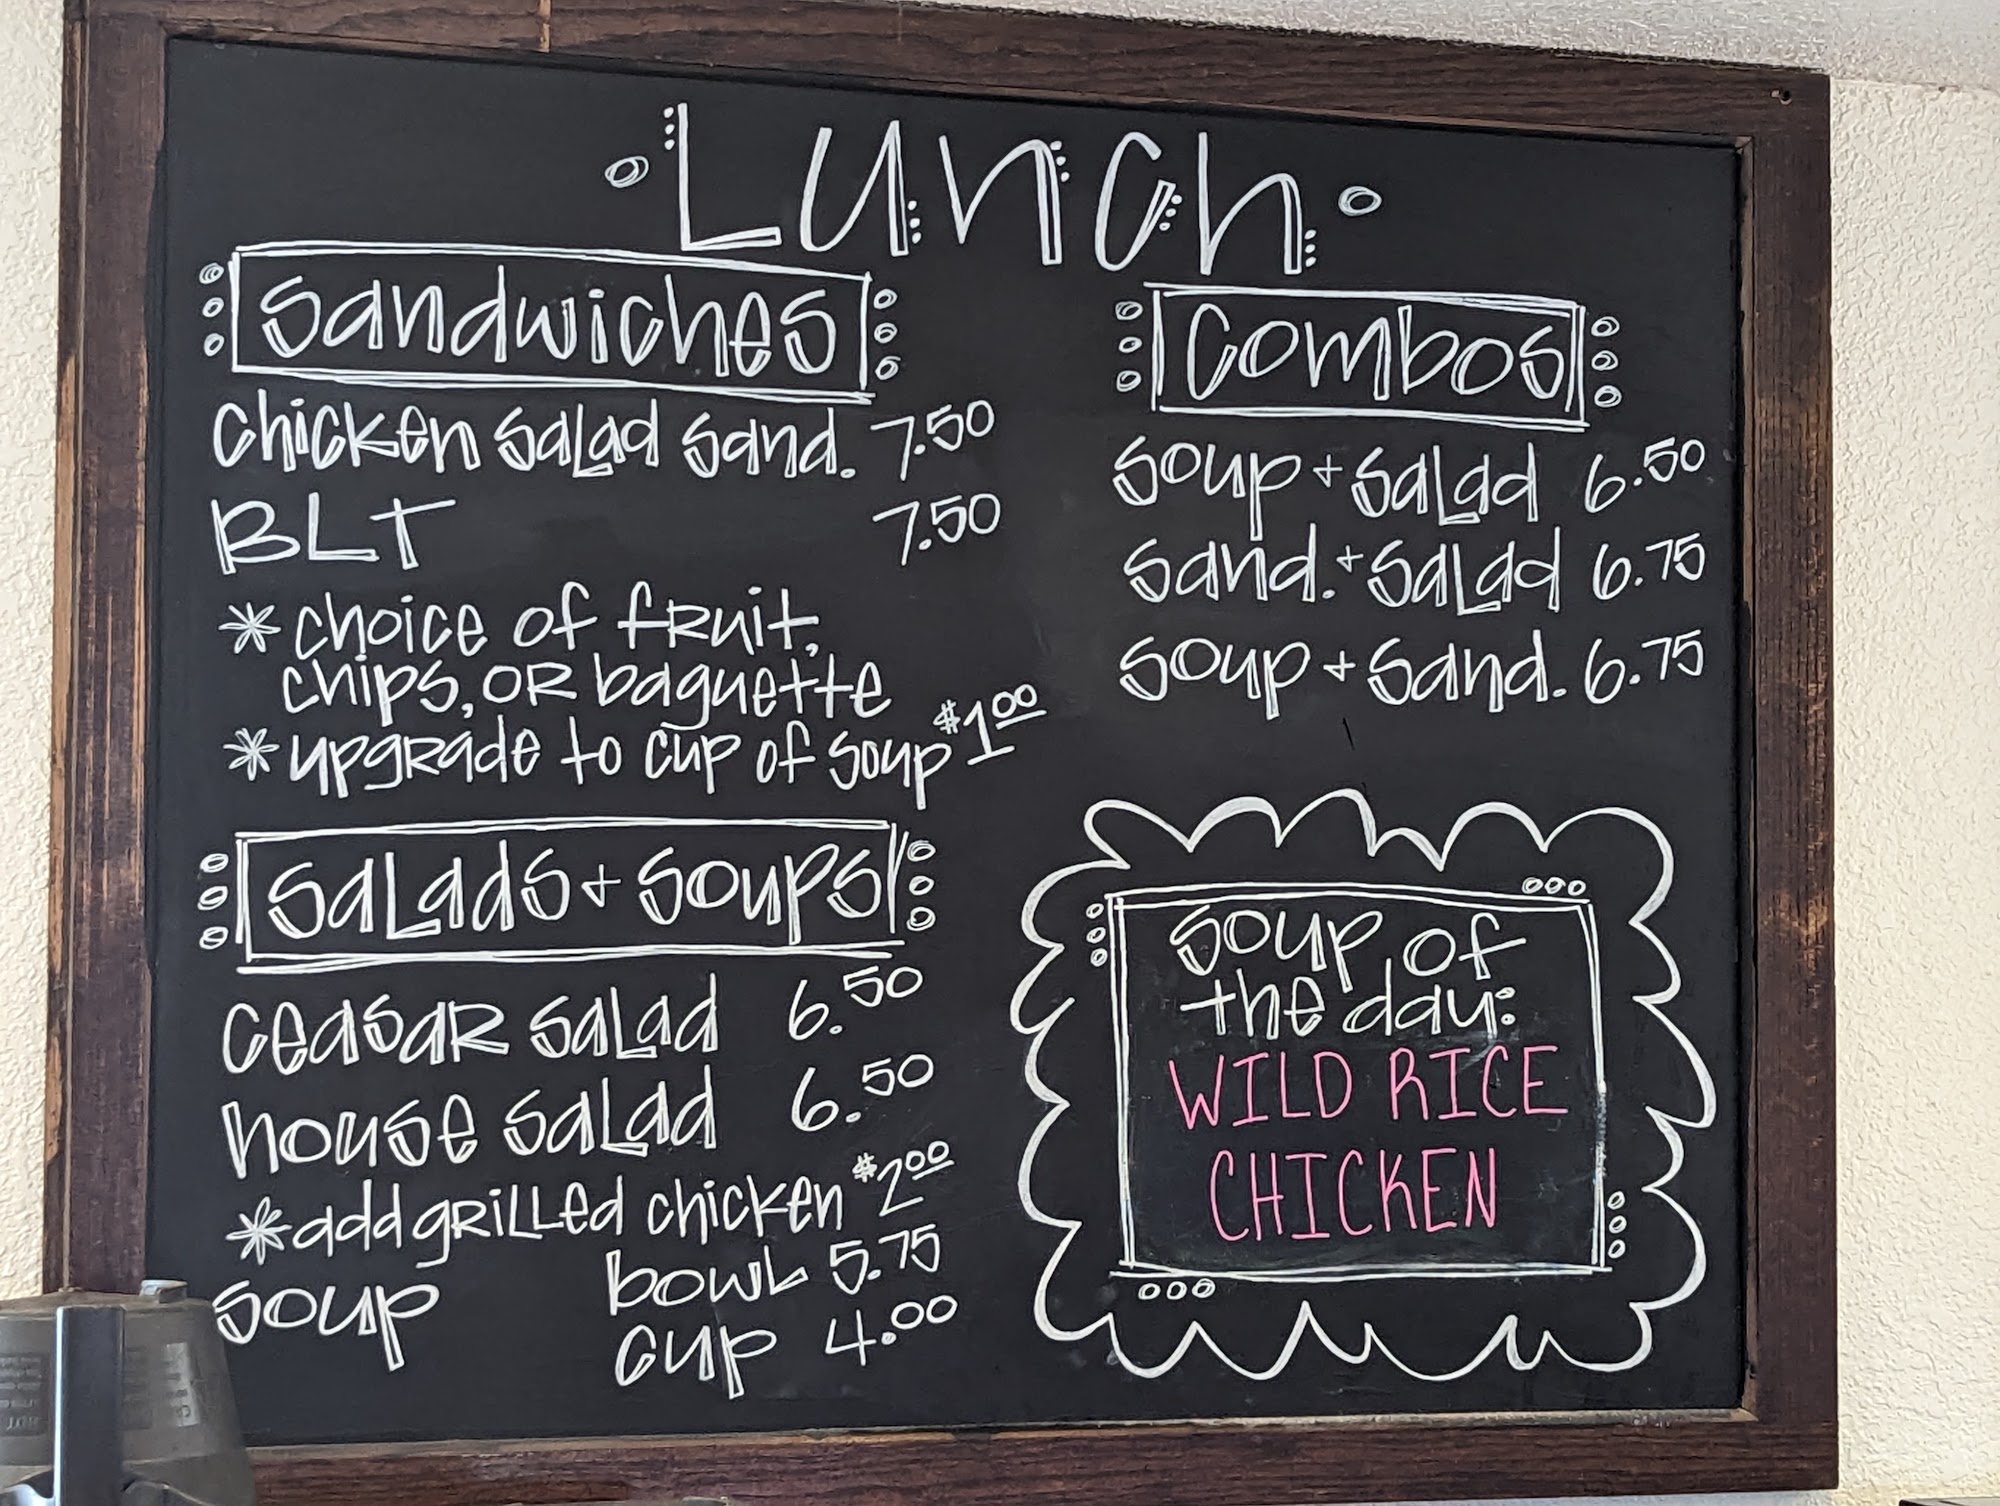 Lunch
Sandwiches
Chicken Salad Sand. 7.50
BLT 7.50
* Choice of fruit,
chips, or baguette
* upgrade to cup of soup $1.00
Salads + Soups
Ceasar Salad 6.50
House Salad 6.50
* add grilled chicken $2.00
Soup bowl 5.75
cup 4.00
Combos
Soup + Salad 6.50
Sand. + Salad 6.75
Soup + Sand. 6.75
Soup of
the day:
WILD RICE
CHICKEN